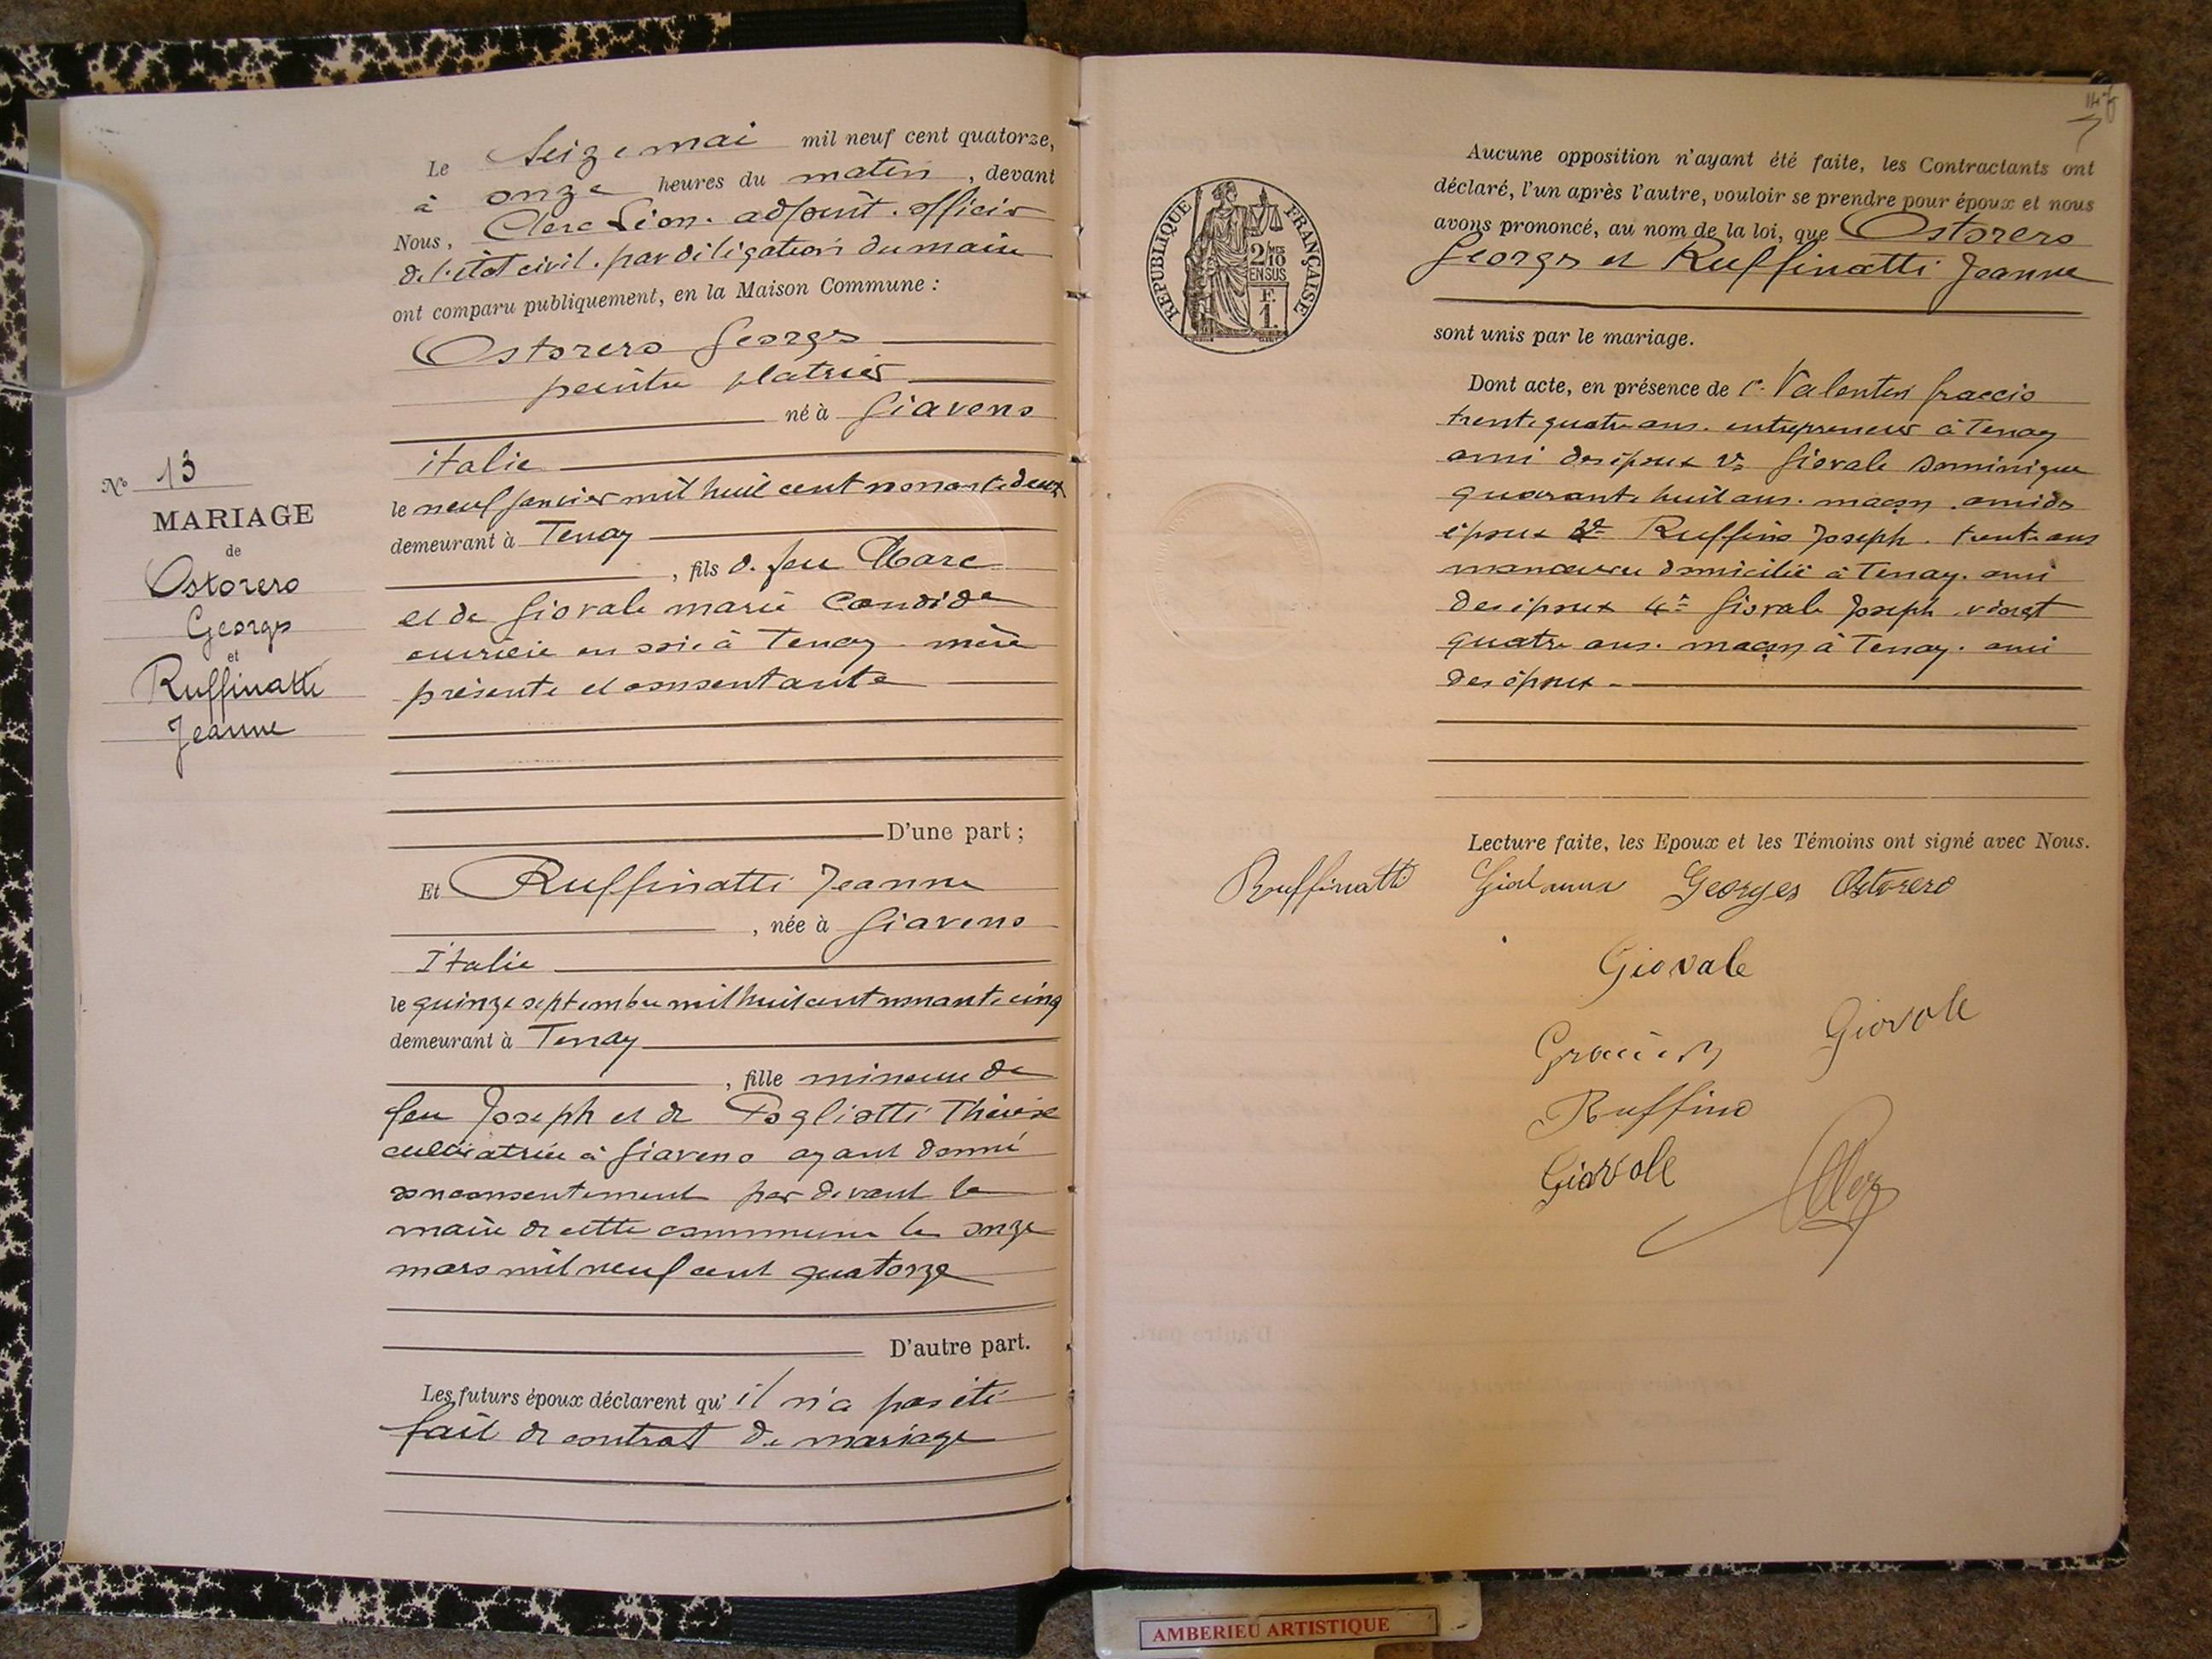 Le Seize mai mil neuf cent quatorze,
à onze heures du matin, devant
Nous, Clerc Léon. adjoint. officier
de l'état civil. par délégation du maire
ont comparu publiquement, en la Maison Commune :
Ostorero Georges
peintre platrier
né à Giaveno
italie
le neuf janvier mil huit cent nonante deux
demeurant à Tenay
, fils de feu Marc
et de Giovale marie Candide
ouvrière en soie à Tenay. mère
présente et consentante
D'une part ;
Et Ruffinatti Jeanne
, née à Giaveno
Italie
le quinze septembre mil huit cent nonante cinq
demeurant à Tenay
, fille mineure de
feu Joseph et de Pogliotti Thérèse
cultivatrice à Giaveno ayant donné
son consentement par devant le
maire de cette commune le onze
mars mil neuf cent quatorze
D'autre part.
Les futurs époux déclarent qu' il n'a pas été
fait de contrat de mariage
N° 13
MARIAGE
de
Ostorero
Georges
et
Ruffinatti
Jeanne
REPUBLIQUE FRANÇAISE
2/10 EN SUS
F. 1.
Aucune opposition n'ayant été faite, les Contractants ont
déclaré, l'un après l'autre, vouloir se prendre pour époux et nous
avons prononcé, au nom de la loi, que Ostorero
Georges et Ruffinatti Jeanne
sont unis par le mariage.
Dont acte, en présence de Valentin
trente quatre ans. entrepreneur à Tenay
ami des époux 2° Giovale Dominique
quarante huit ans. maçon. ami des
époux 3° Ruffino Joseph. trente ans
manoeuvre domicilié à Tenay. ami
des époux 4° Giovale Joseph. vingt
quatre ans. maçon à Tenay. ami
des époux.
Lecture faite, les Epoux et les Témoins ont signé avec Nous.
Ruffinatti Georges Ostorero
Giovale
Giovale
Ruffino
Giovale
AMBERIEU ARTISTIQUE